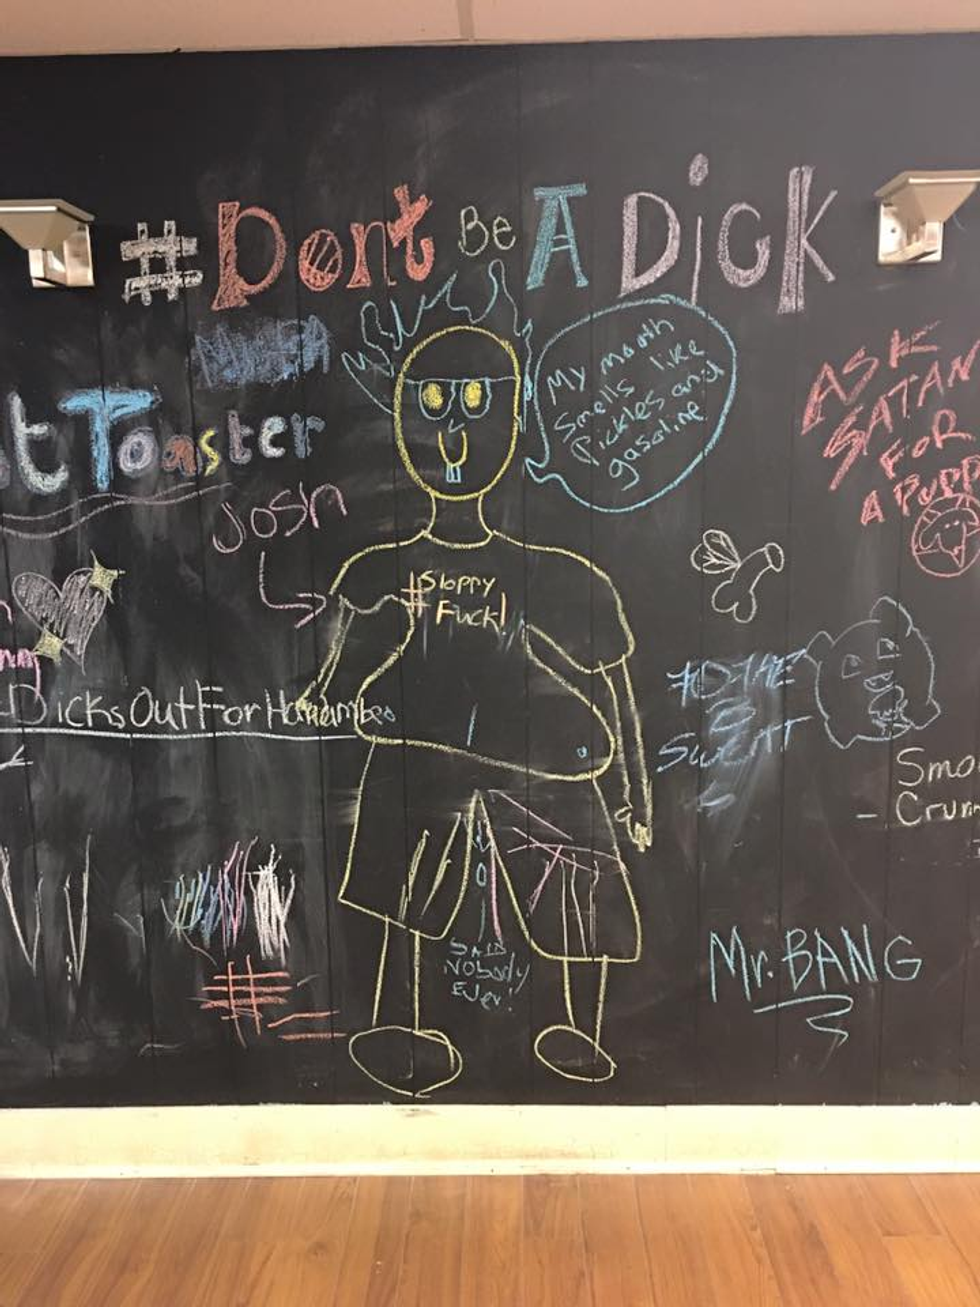 #Dont Be A Dick
t Toaster
My mouth
smells like
Pickles and
gasoline
ASK
SATAN
FOR
A PUPP
JOSH
#Sloppy
Fuck!
DicksOutForHarambe
Smo
- Crun
SAID
NOBODY
EVer!
Mr. BANG